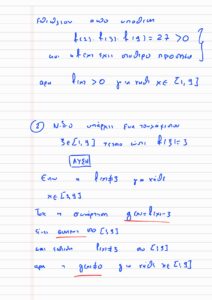 επιπλέον από υπόθεση
f(2) · f(5) · f(9) = 27 > 0
και η f έχει σταθερό πρόσημο
άρα f(x) > 0 για κάθε x ∈ [1,9]
Ν.δ.ο υπάρχει ένα τουλάχιστον
ξ ∈ [1,9] τέτοιο ώστε f(ξ) = 3
ΛΥΣΗ
Έστω f(x) ≠ 3 για κάθε
x ∈ [1,9]
Τότε η συνάρτηση g(x) = f(x) - 3
είναι συνεχής στο [1,9]
και επειδή f(x) ≠ 3 στο [1,9]
άρα η g(x) ≠ 0 για κάθε x ∈ [1,9]